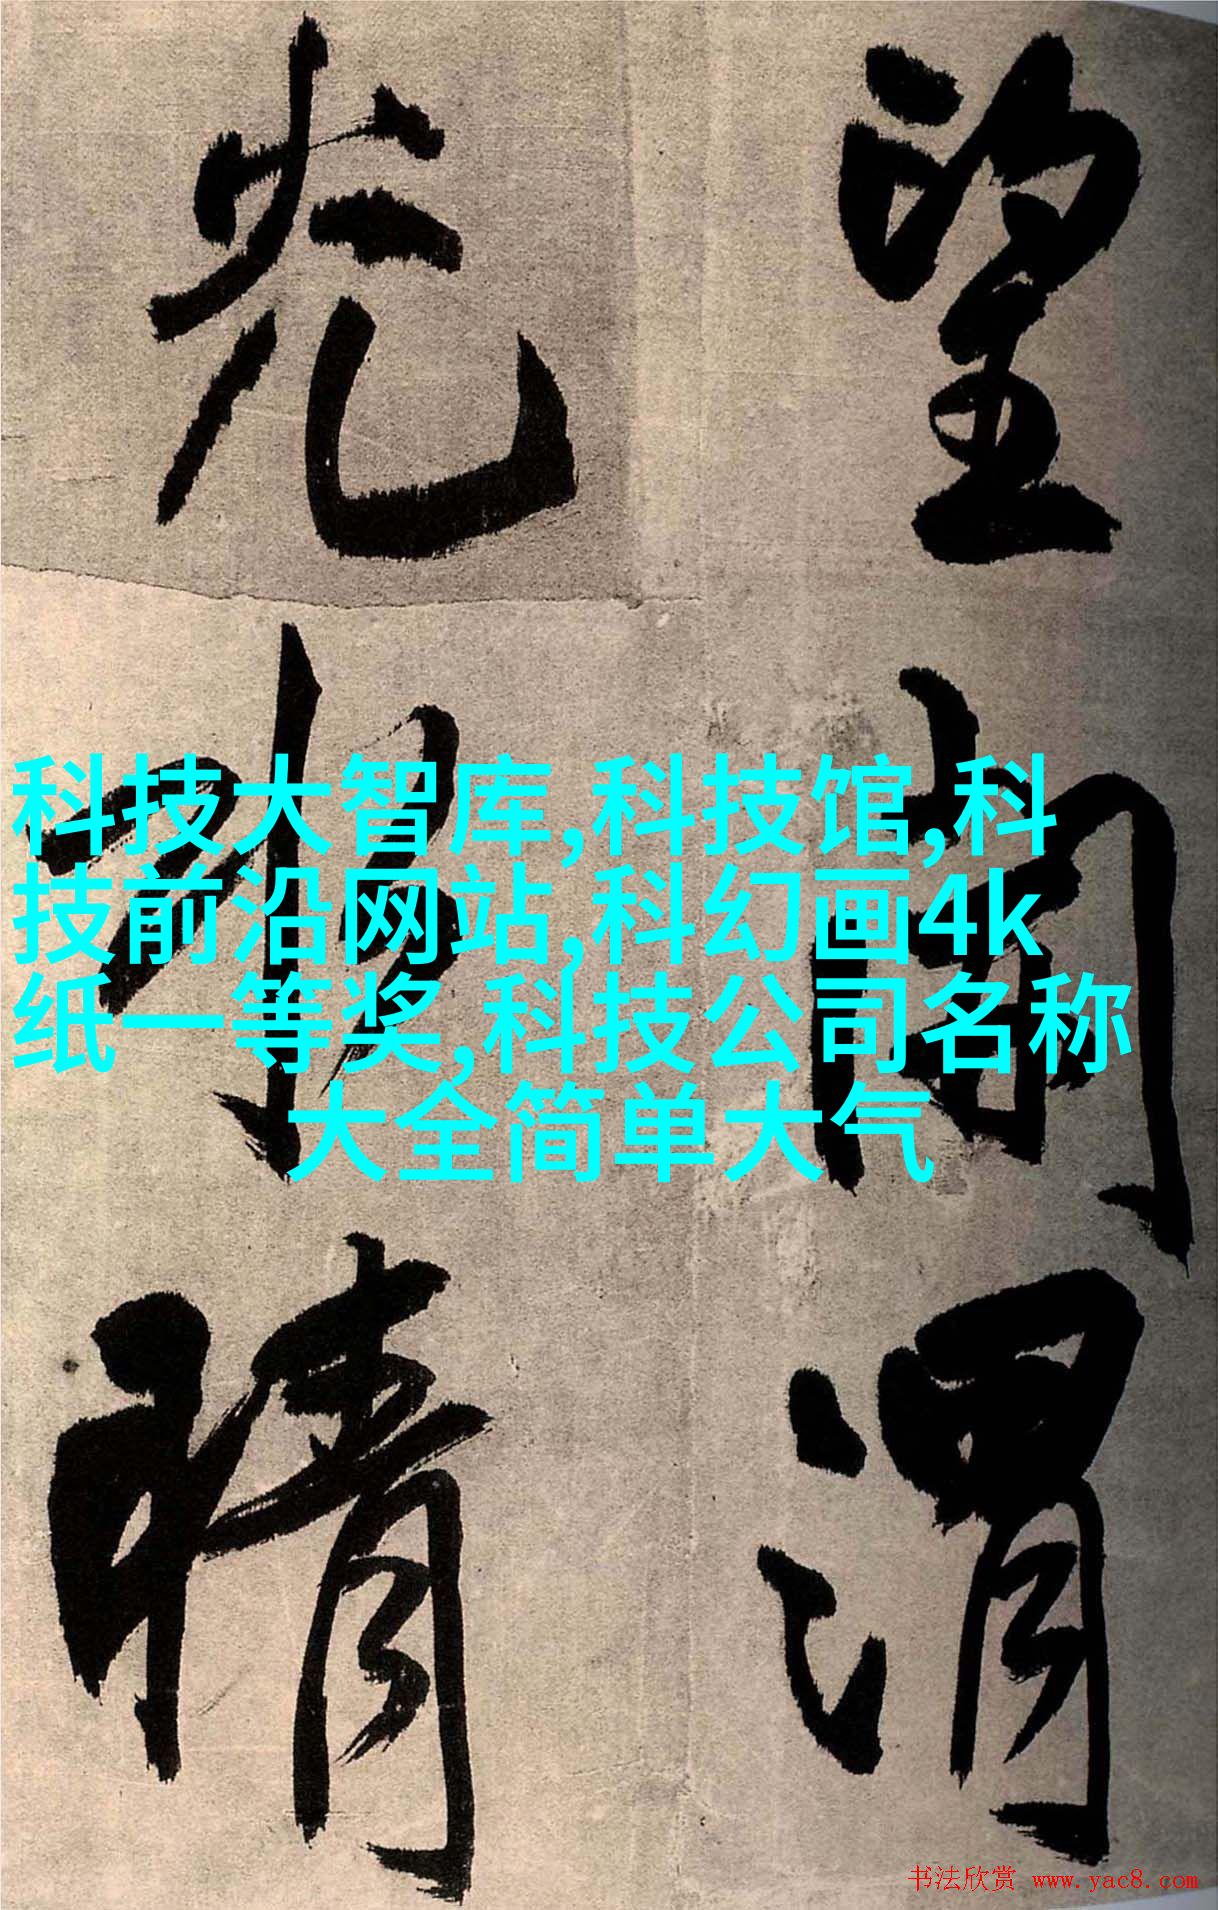 望
渭
光
晴
科技大智库,科技馆,科
技前沿网站,科幻画4k
纸一等奖,科技公司名称
大全简单大气
书法欣赏 www.yac8.com